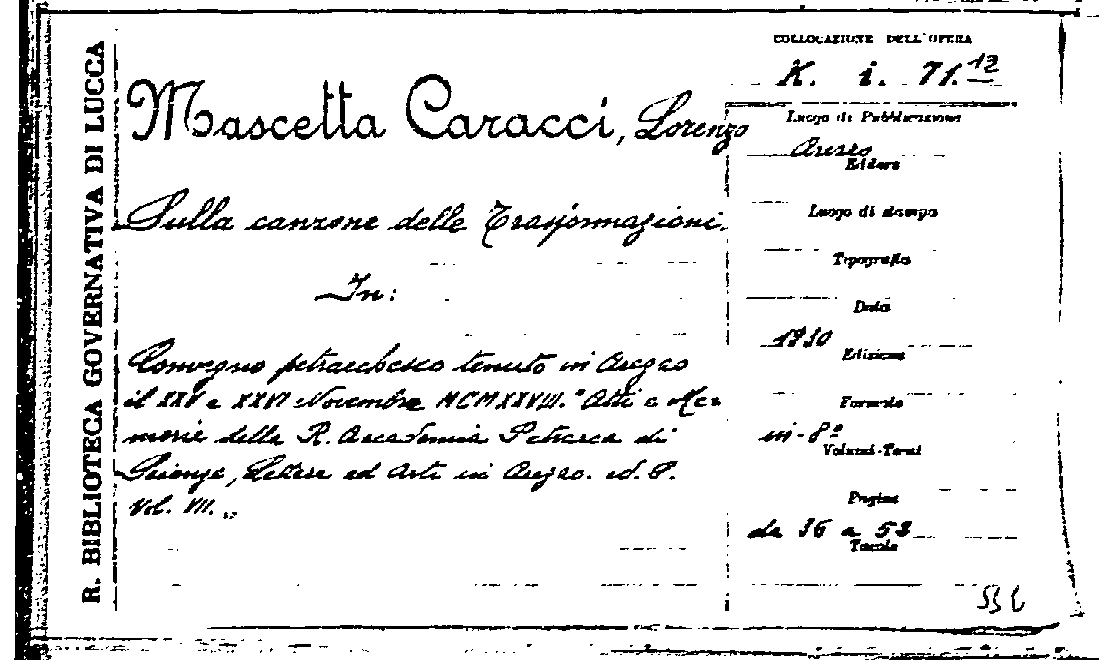 R. BIBLIOTECA GOVERNATIVA DI LUCCA
Mascetta Caracci, Lorenzo
Sulla canzone delle Trasformazioni.
In:
Convegno petrarchesco tenuto in Arezzo
il XXV e XXVI Novembre MCMXXVIII. "Atti e Me=
morie della R. Accademia Petrarca di
Scienze, Lettere ed Arti in Arezzo. n.S.
Vol. VII. „
COLLOCAZIONE DELL'OPERA
K. i. 71.12
Luogo di Pubblicazione
Arezzo
Editore
Luogo di stampa
Tipografia
Data
1930
Edizione
Formato
in-8º
Volumi-Tomi
Pagine
da 36 a 53
Tavole